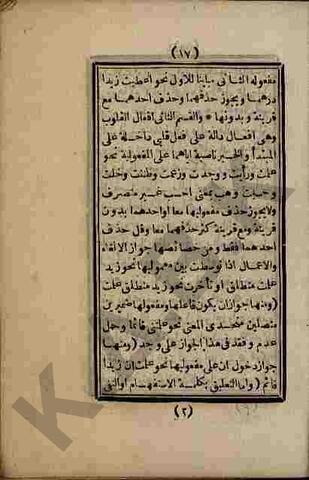 (١٧)
مفعوله الثانى مباينا للاول نحو اعطيت زيدا
درهما ويجوز حذفهما وحذف احدهما مع
قرينة وبدونها * والقسم الثانى افعال القلوب
وهى افعال دالة على فعل قلبى داخلة على
المبتدأ والخبر ناصبة اياهما على المفعولية نحو
علمت ورأيت ووجدت وزعمت وظننت وخلت
وحسبت وهب بمعنى احسب غير متصرف
ولايجوز حذف مفعوليها معا او احدهما بدون
قرينة ومع قرينة كثر حذفهما معا وقل حذف
احدهما فقط ومن خصائصها جواز الالغاء
والاعمال اذا توسطت بين معموليها نحو زيد
علمت منطلق او تأخرت نحو زيد منطلق علمت
(ومنها جواز ان يكون فاعلها ومفعولها ضميرين
متصلين متحدى المعنى نحو علمتنى قائما وحمل
عدم وفقد فى هذا الجواز على وجد (ومنها
جواز دخول ان على مفعوليها نحو علمت ان زيدا
قائم (واما التعليق بكلمة الاستفهام او النفى
(٢)